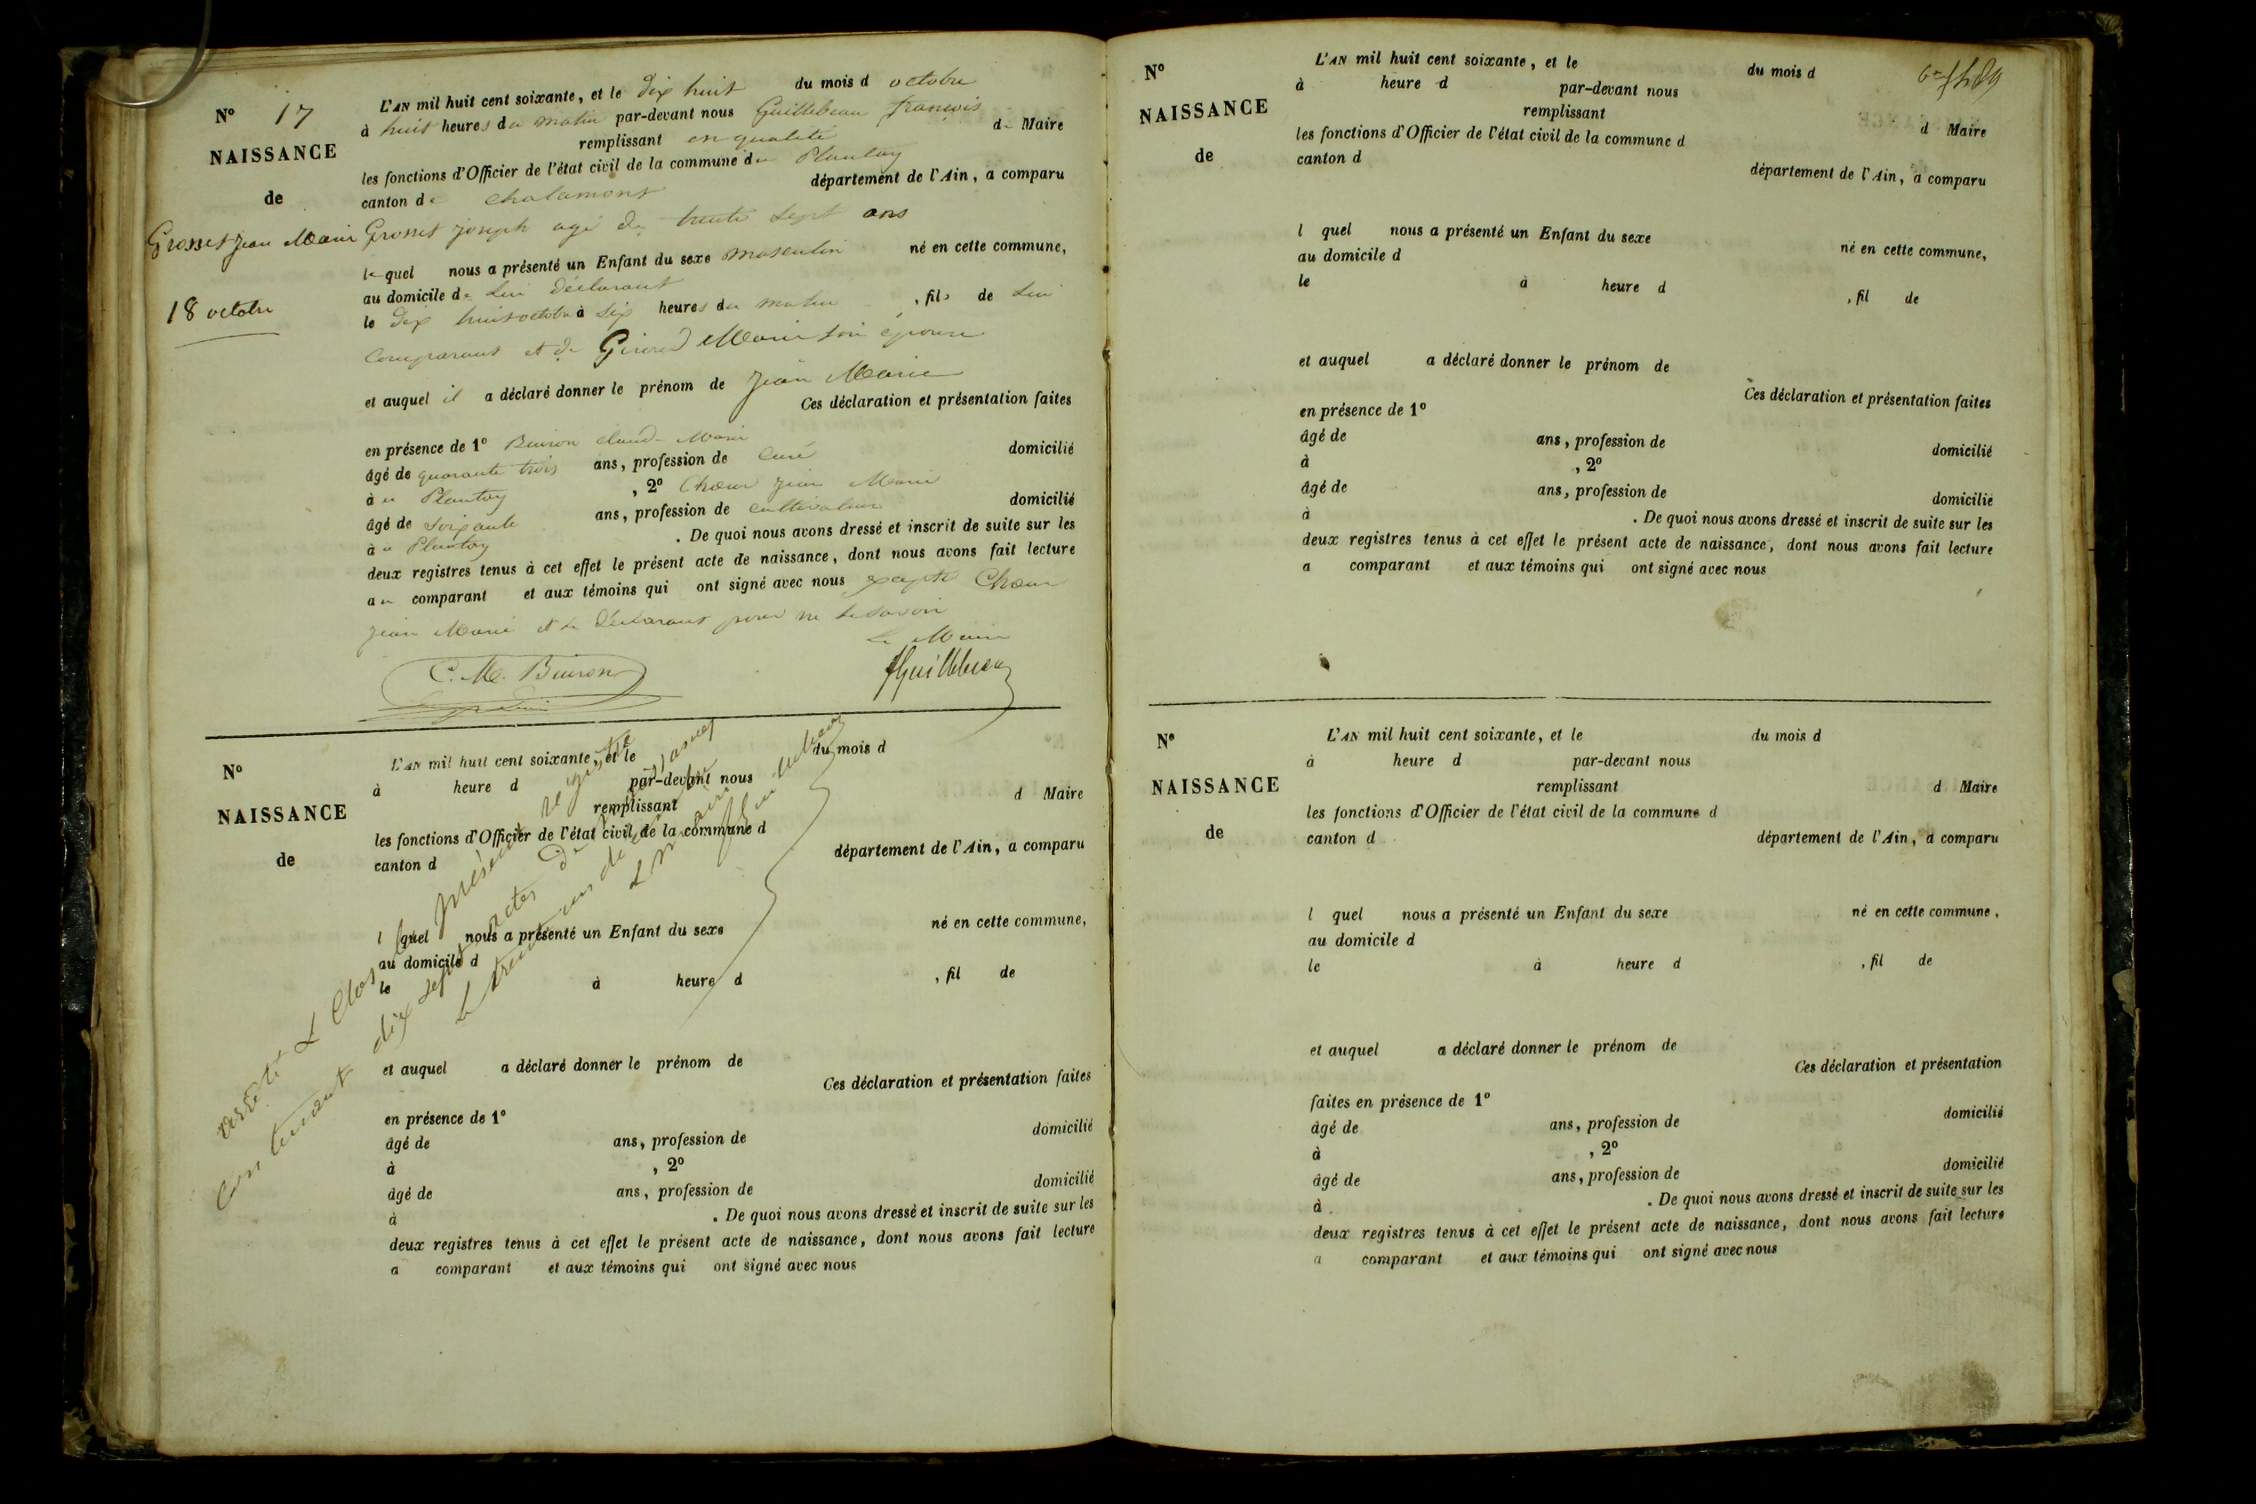 N° 17
NAISSANCE
de
Grosset Jean Marie
18 octobre
L'AN mil huit cent soixante, et le dix huit du mois d octobre
à huit heures du matin par-devant nous Guillebeau françois
remplissant en qualité de Maire
les fonctions d'Officier de l'état civil de la commune du Plantay
canton de chalamont département de l'Ain, a comparu
Grosset joseph agé de trente sept ans
lequel nous a présenté un Enfant du sexe masculin né en cette commune,
au domicile de lui déclarant
le dix huit octobre à six heures du matin , fils de lui
comparant et de Girard Marie son épouse
et auquel il a déclaré donner le prénom de Jean Marie
Ces déclaration et présentation faites
en présence de 1° Buiron claude Marie
âgé de quarante trois ans, profession de curé domicilié
à u Plantay , 2° Chœur jean Marie
âgé de soixante ans, profession de cultivateur domicilié
à u Plantay . De quoi nous avons dressé et inscrit de suite sur les
deux registres tenus à cet effet le présent acte de naissance, dont nous avons fait lecture
au comparant et aux témoins qui ont signé avec nous excepté Chœur
jean Marie et le déclarant pour ne le savoir
le Maire
C. M. Buiron
fGuillebeau
N°
NAISSANCE
de
L'AN mil huit cent soixante, et le du mois d
à heure d par-devant nous
remplissant d Maire
les fonctions d'Officier de l'état civil de la commune d
canton d département de l'Ain, a comparu
l quel nous a présenté un Enfant du sexe né en cette commune,
au domicile d
le à heure d , fil de
et auquel a déclaré donner le prénom de
Ces déclaration et présentation faites
en présence de 1°
âgé de ans, profession de domicilié
à , 2°
âgé de ans, profession de domicilié
à . De quoi nous avons dressé et inscrit de suite sur les
deux registres tenus à cet effet le présent acte de naissance, dont nous avons fait lecture
a comparant et aux témoins qui ont signé avec nous
arrêté & Clos le présent registre
contenant dix sept actes de
le trente un
le maire
N°
NAISSANCE
de
L'AN mil huit cent soixante, et le du mois d
à heure d par-devant nous
remplissant d Maire
les fonctions d'Officier de l'état civil de la commune d
canton d département de l'Ain, a comparu
l quel nous a présenté un Enfant du sexe né en cette commune,
au domicile d
le à heure d , fil de
et auquel a déclaré donner le prénom de
Ces déclaration et présentation faites
en présence de 1°
âgé de ans, profession de domicilié
à , 2°
âgé de ans, profession de domicilié
à . De quoi nous avons dressé et inscrit de suite sur les
deux registres tenus à cet effet le présent acte de naissance, dont nous avons fait lecture
a comparant et aux témoins qui ont signé avec nous
N°
NAISSANCE
de
L'AN mil huit cent soixante, et le du mois d
à heure d par-devant nous
remplissant d Maire
les fonctions d'Officier de l'état civil de la commune d
canton d département de l'Ain, a comparu
l quel nous a présenté un Enfant du sexe né en cette commune,
au domicile d
le à heure d , fil de
et auquel a déclaré donner le prénom de
Ces déclaration et présentation
faites en présence de 1°
âgé de ans, profession de domicilié
à , 2°
âgé de ans, profession de domicilié
à . De quoi nous avons dressé et inscrit de suite sur les
deux registres tenus à cet effet le présent acte de naissance, dont nous avons fait lecture
a comparant et aux témoins qui ont signé avec nous